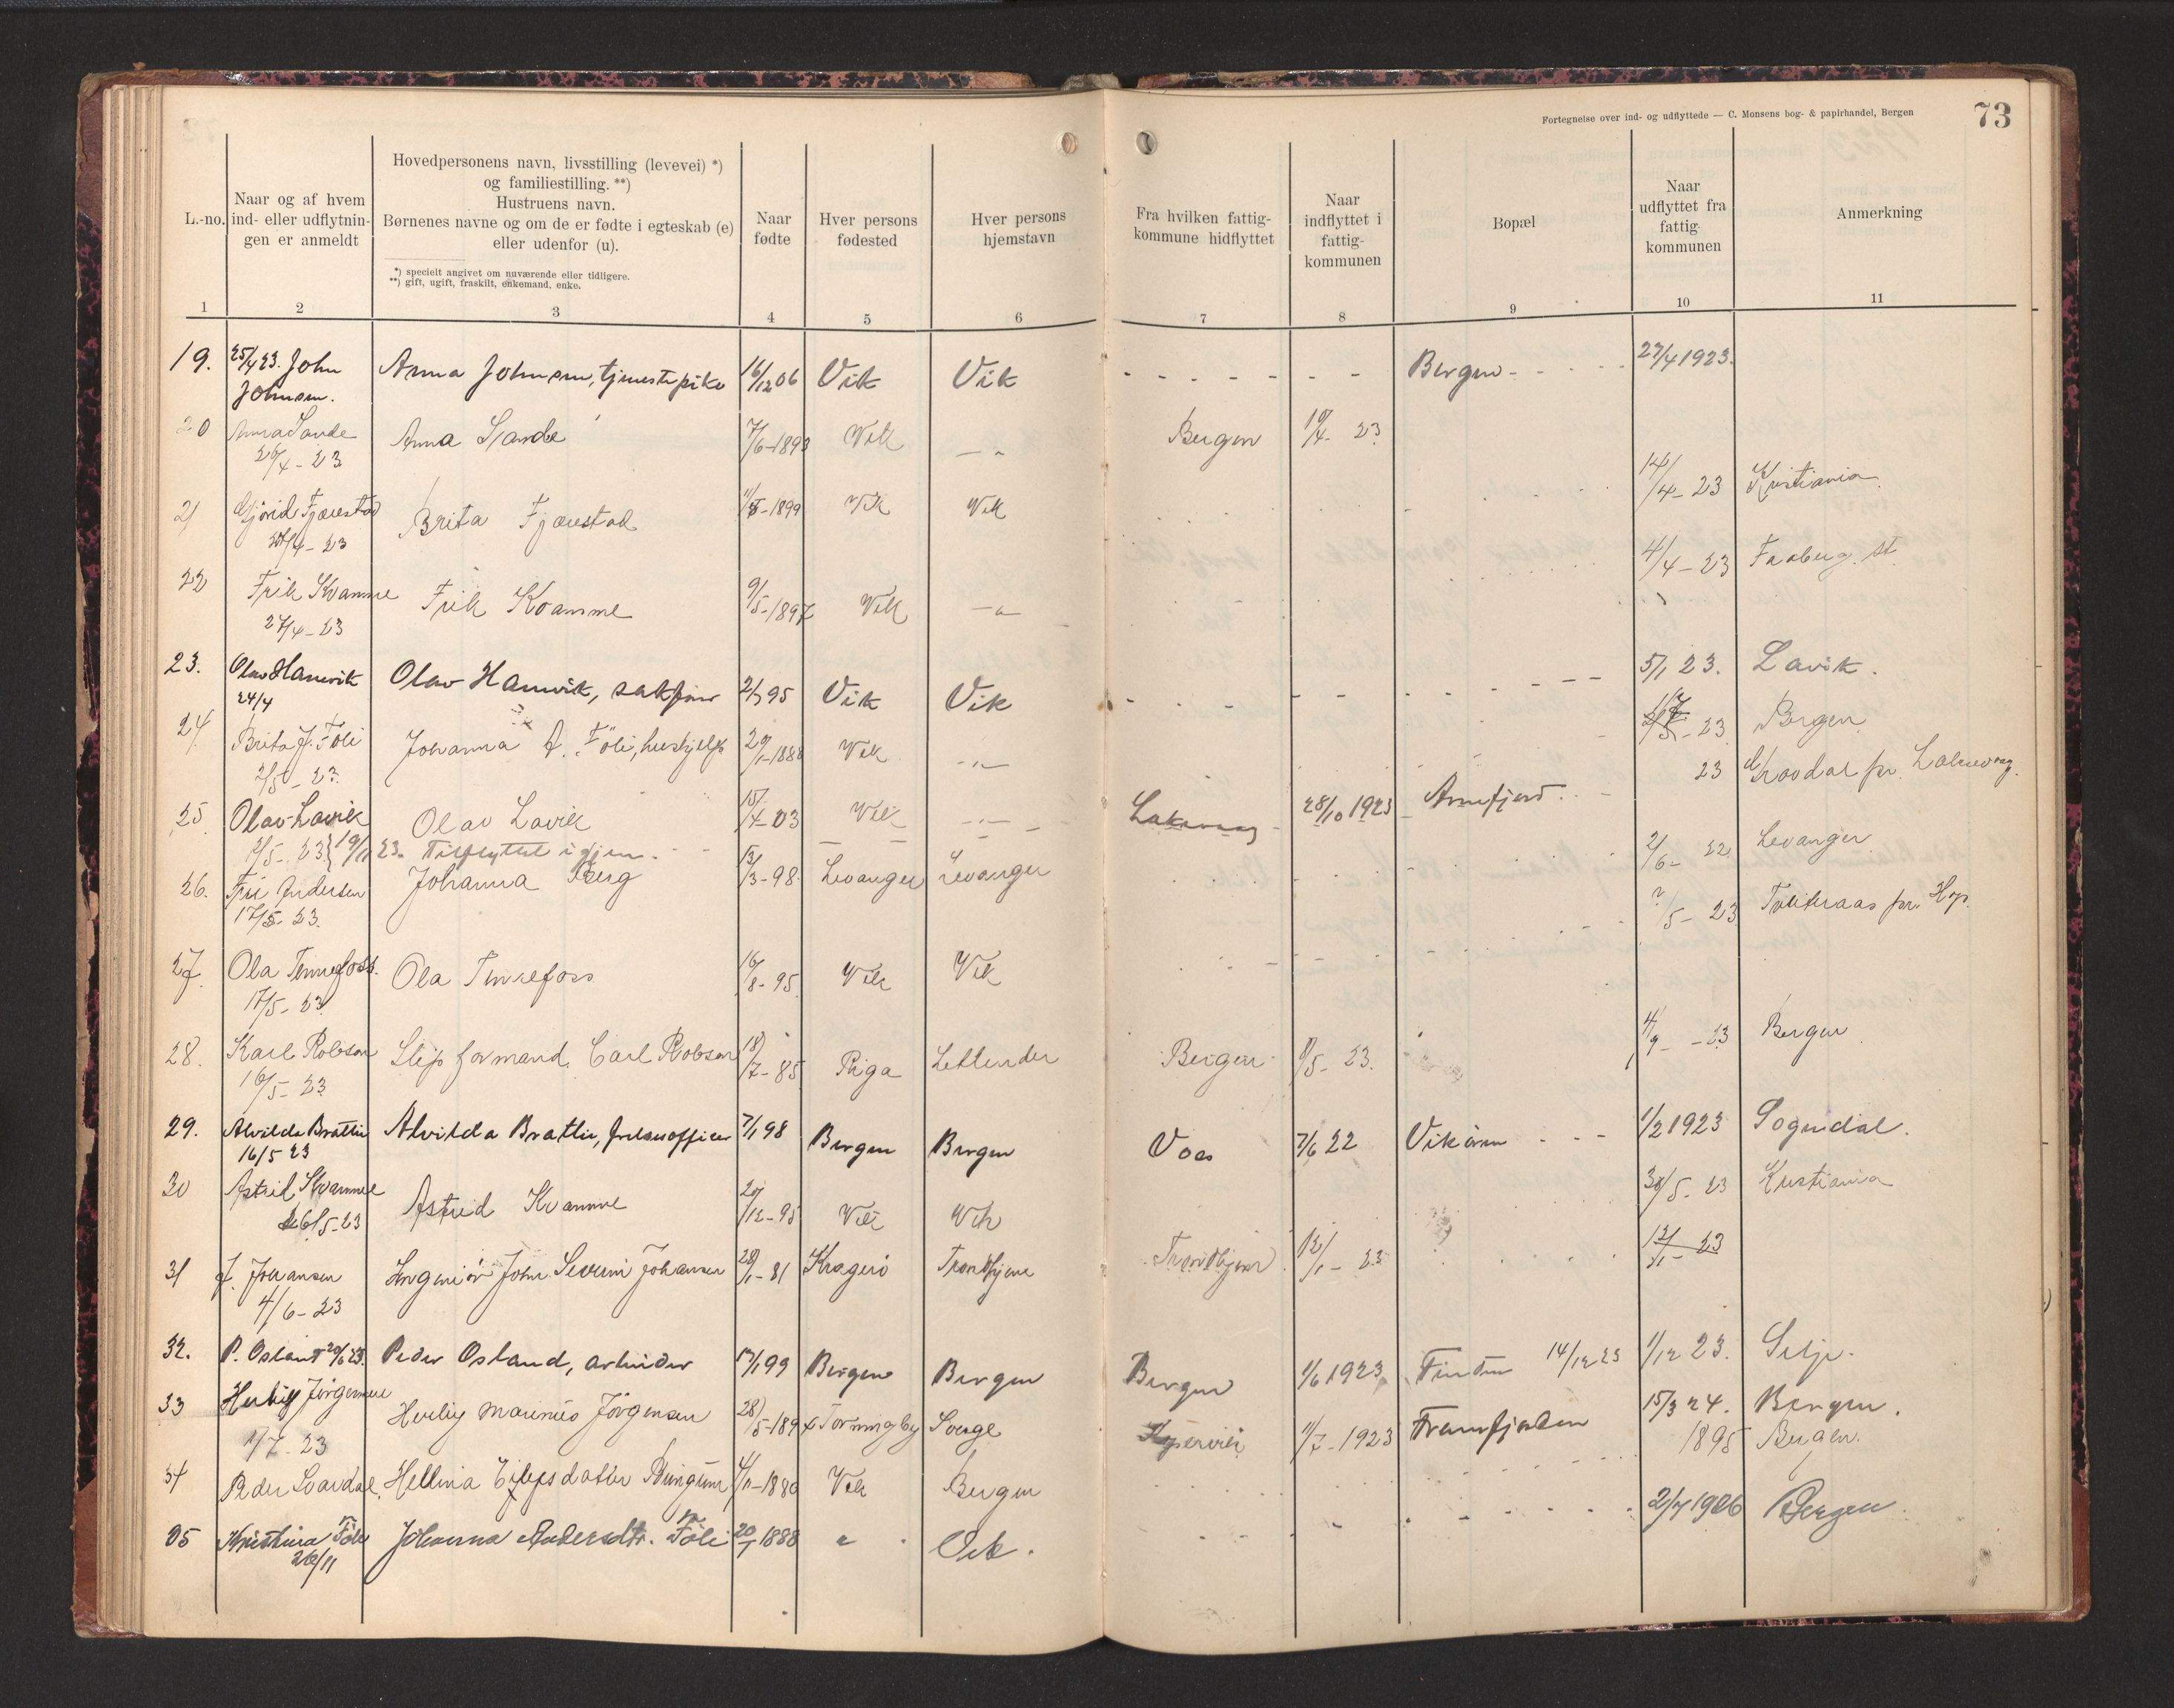 Fortegnelse over ind- og udflyttede — C. Monsens bog- & papirhandel, Bergen
73
L.-no.
Naar og af hvem
ind- eller udflytnin-
gen er anmeldt
Hovedpersonens navn, livsstilling (levevei) *)
og familiestilling. **)
Hustruens navn.
Børnenes navne og om de er fødte i egteskab (e)
eller udenfor (u).
*) specielt angivet om nuværende eller tidligere.
**) gift, ugift, fraskilt, enkemand, enke.
Naar
fødte
Hver persons
fødested
Hver persons
hjemstavn
Fra hvilken fattig-
kommune hidflyttet
Naar
indflyttet i
fattig-
kommunen
Bopæl
Naar
udflyttet fra
fattig-
kommunen
Anmerkning
1 2 3 4 5 6 7 8 9 10 11
19. 25/4 23. John Anna Johnsen, tjenestepike 16/12 06 Vik Vik - - - - - - - Bergen - - - - 27/4 1923.
Johnsen.
20 Anna Sande Anna Sande 7/6-1893 Vik — „ — Bergen 19/4- 23
26/4 - 23
14/4- 23 Kristiania
21 Gjørid Fjærestad Brita Fjærestad 11/5-1899 Vik Vik
4/4-23 Faaberg. st.
22 Erik Kvamme Erik Kvamme 9/5-1897 Vik — „ —
27/4-23
23. Olav Hamvik Olav Hamvik, sakfører 2/7 95 Vik Vik - - - - - - 5/1 23. Lavik.
24/4
24 Brita J. Föli Johanna A. Föli, hushjelp 20/1-1888 Vik - „ - - 23 Bergen
2/5-23.
25 Olav Lavik Olav Lavik 15/4-03 Vik - „ - Laksevaag 28/10 1923 Arnefjord. 23 pr. Laksevaag.
2/5-23 } 19/11 23. Tilflyttet igjen.
26. Andersen Johanna Berg 13/3-98 Levanger Levanger 2/6- 22 Levanger
17/5-23.
/5- 23 pr. Hop.
27 Ola Tennefoss. Ola Tennefoss 16/8-95 Vik Vik
17/5-23
28. Karl Robson Slip formand. Carl Robson 18/7-85 Riga Letlender Bergen 8/5- 23. 4/9- - 23 Bergen
16/5-23
29. Alvilda Brattli Alvilda Brattli, frelsesofficer 7/1 98 Bergen Bergen Voss 7/6 22 Vikøren - - - 1/2 1923 Sogndal.
16/5 23
30 Astrid Kvamme Astrid Kvamme 20/12-95 Vik Vik 30/5-23 Kristiania
26/5-23
31 J. Johansen Ingeniør John Severin Johansen 28/1-81 Kragerö Trondhjem Trondhjem 12/1- 23 12/1- 23
4/6-23
32. P. Osland 20/6 23. Peder Osland, arbeider 17/1 99 Bergen Bergen Bergen 1/6 1923 Finden 14/12 23 1/12 23. Selje.
33 Herlig Jörgensen Herlig Marinus Jörgensen 28/5-1894 Torningby Sverge Kopervik 11/7-1923 Framfjorden 15/3 24. Bergen.
1/7-23
34 Peder Svardal. Hellina Eilefsdatter 4/11-1880 Vik Bergen 1895 Bergen.
35 Kristina Föli Johanna Andersdtr. Föli 20/1 1888 „ Vik. - - - - 2/4 1906 Bergen
26/11